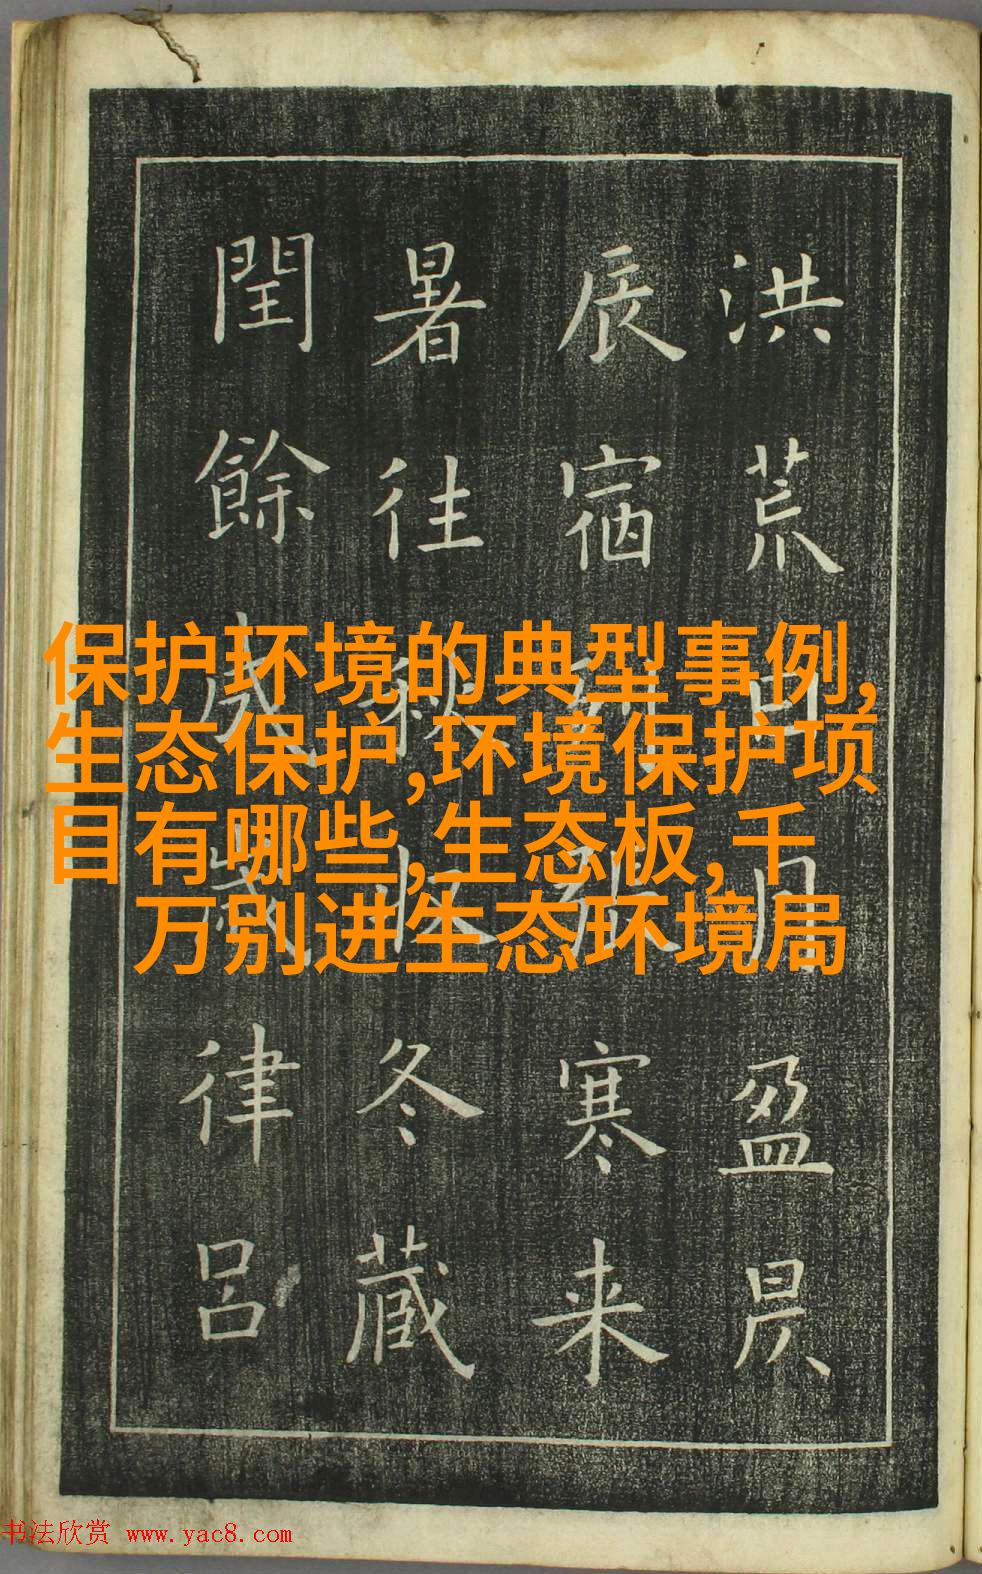 洪荒日月盈昃
辰宿列張寒来
暑往秋收冬藏
閏餘成歲律呂
保护环境的典型事例,
生态保护,环境保护项
目有哪些,生态板,千
万别进生态环境局
书法欣赏 www.yac8.com